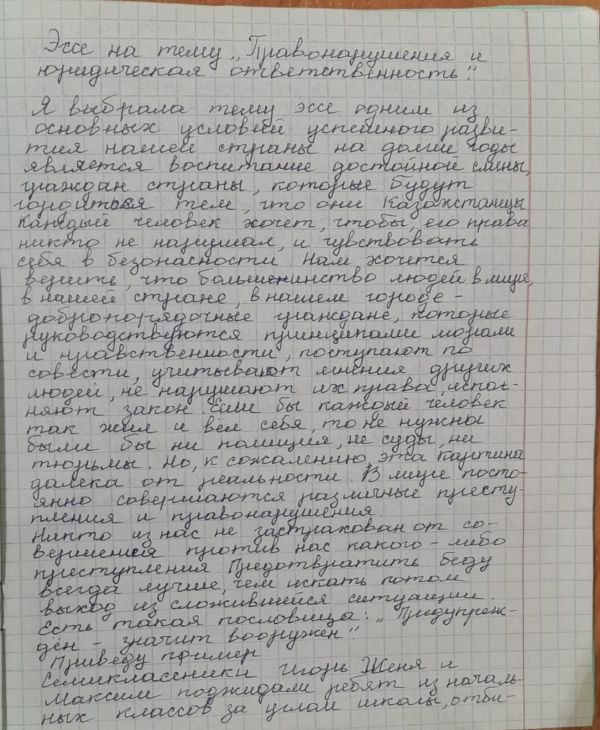 Эссе на тему „Правонарушения и
юридическая ответственность".
Я выбрала тему эссе одним из
основных условий успешного разви-
тия нашей страны на долгие годы
является воспитание достойной смены,
граждан страны, которые будут
гордяться тем, что они Казахстанцы
Каждый человек хочет, чтобы, его права
никто не нарушал, и чувствовать
себя в безопасности Нам хочется
верить, что большенинство людей в мире,
в нашей стране, в нашем городе -
добропорядочные граждане, которые
руководствуются принципами морали
и нравственности, поступают по
совести, учитывают мнения других
людей, не нарушают их права, испол-
няют закон. Если бы каждый человек
так жил и вел себя, то не нужны
были бы ни полиция, не суды, ни
тюрьмы. Но, к сожалению, эта картина
далека от реальности. В мире посто-
янно совершаются различные престу-
пления и правонарушения.
Никто из нас не застрахован от со-
вершения против нас какого-либо
преступления Предотвратить беду
всегда лучше, чем искать потом
выход из сложившейся ситуации.
Есть такая пословица: „Предупреж-
ден - значит вооружен".
Приведу пример
Семиклассники Игорь Женя и
Максим поджидали ребят из началь-
ных классов за углом школы, отби-